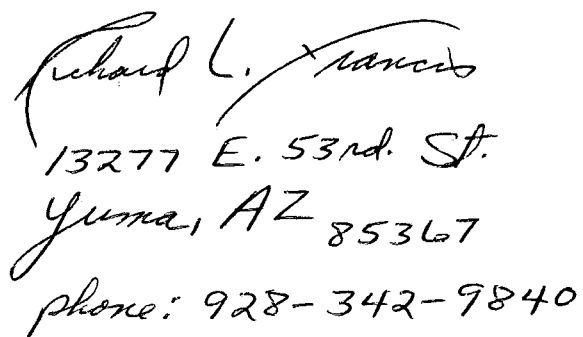 Richard L. Francis
13277 E. 53rd. St.
Yuma, AZ 85367
phone: 928-342-9840